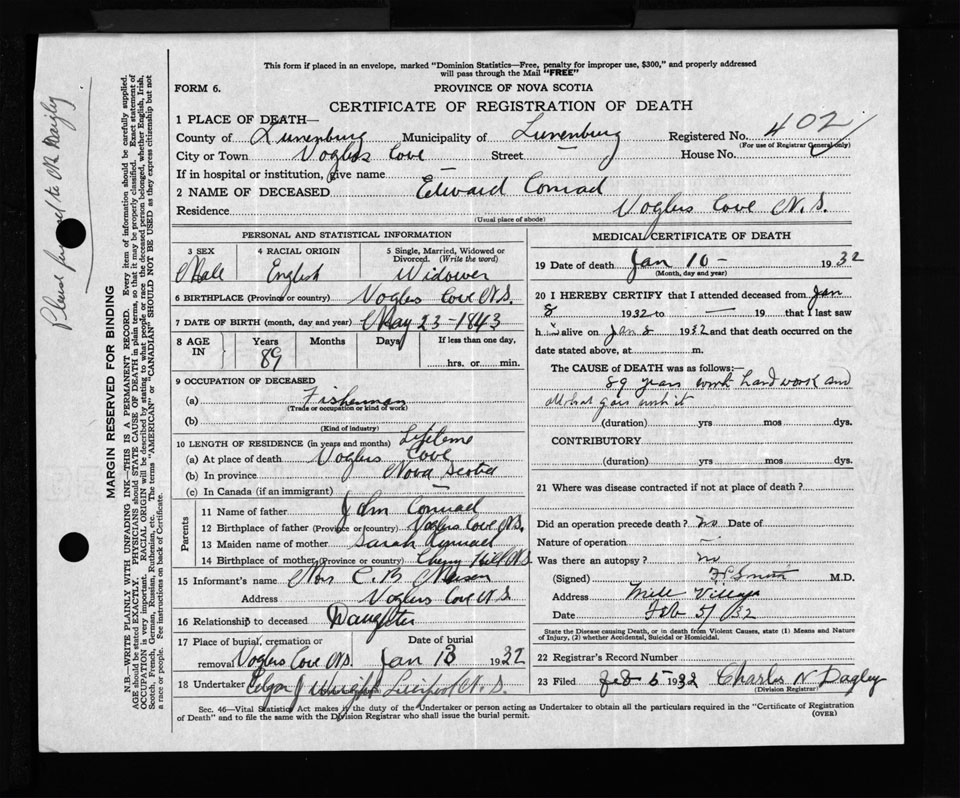 This form if placed in an envelope, marked "Dominion Statistics—Free, penalty for improper use, $300," and properly addressed
will pass through the Mail "FREE"
FORM 6.
PROVINCE OF NOVA SCOTIA
CERTIFICATE OF REGISTRATION OF DEATH
1 PLACE OF DEATH—
County of Lunenburg Municipality of Lunenburg Registered No. 402
(For use of Registrar General only)
City or Town Voglers Cove Street — House No.
If in hospital or institution, give name —
2 NAME OF DECEASED Edward Conrad
Residence Voglers Cove N.S.
(Usual place of abode)
PERSONAL AND STATISTICAL INFORMATION
3 SEX 4 RACIAL ORIGIN 5 Single, Married, Widowed or
Divorced. (Write the word)
Male English Widower
6 BIRTHPLACE (Province or country) Voglers Cove N.S.
7 DATE OF BIRTH (month, day and year) May 23-1843
8 AGE IN Years Months Days If less than one day,
89 hrs. or min.
9 OCCUPATION OF DECEASED
(a) Fisherman
(Trade or occupation or kind of work)
(b)
(Kind of industry)
10 LENGTH OF RESIDENCE (in years and months) Lifetime
(a) At place of death Voglers Cove
(b) In province Nova Scotia
(c) In Canada (if an immigrant) —
Parents
11 Name of father John Conrad
12 Birthplace of father (Province or country) Voglers Cove N.S.
13 Maiden name of mother Sarah
14 Birthplace of mother (Province or country) Cherry Hill N.S.
15 Informant's name Mrs C. B.
Address Voglers Cove N.S.
16 Relationship to deceased Daughter
17 Place of burial, cremation or Date of burial
removal Voglers Cove N.S. Jan 13 1932
18 Undertaker Edgar J Liverpool N.S.
MEDICAL CERTIFICATE OF DEATH
19 Date of death Jan 10 - 1932
(Month, day and year)
20 I HEREBY CERTIFY that I attended deceased from Jan
8 1932 to — 19 that I last saw
him alive on Jan 8 1932 and that death occurred on the
date stated above, at m.
The CAUSE of DEATH was as follows:—
89 years work hard work and
all that goes with it
(duration) yrs mos dys.
CONTRIBUTORY
(duration) yrs mos dys.
21 Where was disease contracted if not at place of death?
Did an operation precede death? No Date of
Nature of operation —
Was there an autopsy? no
(Signed) Smith M.D.
Address Mill Village
Date Feb 5/32
State the Disease causing Death, or in death from Violent Causes, state (1) Means and Nature
of Injury, (2) whether Accidental, Suicidal or Homicidal.
22 Registrar's Record Number
23 Filed Feb 5 1932 Charles N Dagley
(Division Registrar)
Sec. 46—Vital Statistics Act makes it the duty of the Undertaker or person acting as Undertaker to obtain all the particulars required in the "Certificate of Registration
of Death" and to file the same with the Division Registrar who shall issue the burial permit.
(OVER)
MARGIN RESERVED FOR BINDING
N.B.—WRITE PLAINLY WITH UNFADING INK—THIS IS A PERMANENT RECORD. Every item of information should be carefully supplied.
AGE should be stated EXACTLY. PHYSICIANS should STATE CAUSE OF DEATH in plain terms, so that it may be properly classified. Exact statement of
OCCUPATION is very important. RACIAL ORIGIN will be described by stating to what people or race the deceased person belonged, whether English, Irish,
Scotch, French, German, Russian, Ruthenian, etc. The terms "AMERICAN" or "CANADIAN" SHOULD NOT BE USED as they express citizenship but not
a race or people. See instructions on back of Certificate.
Please